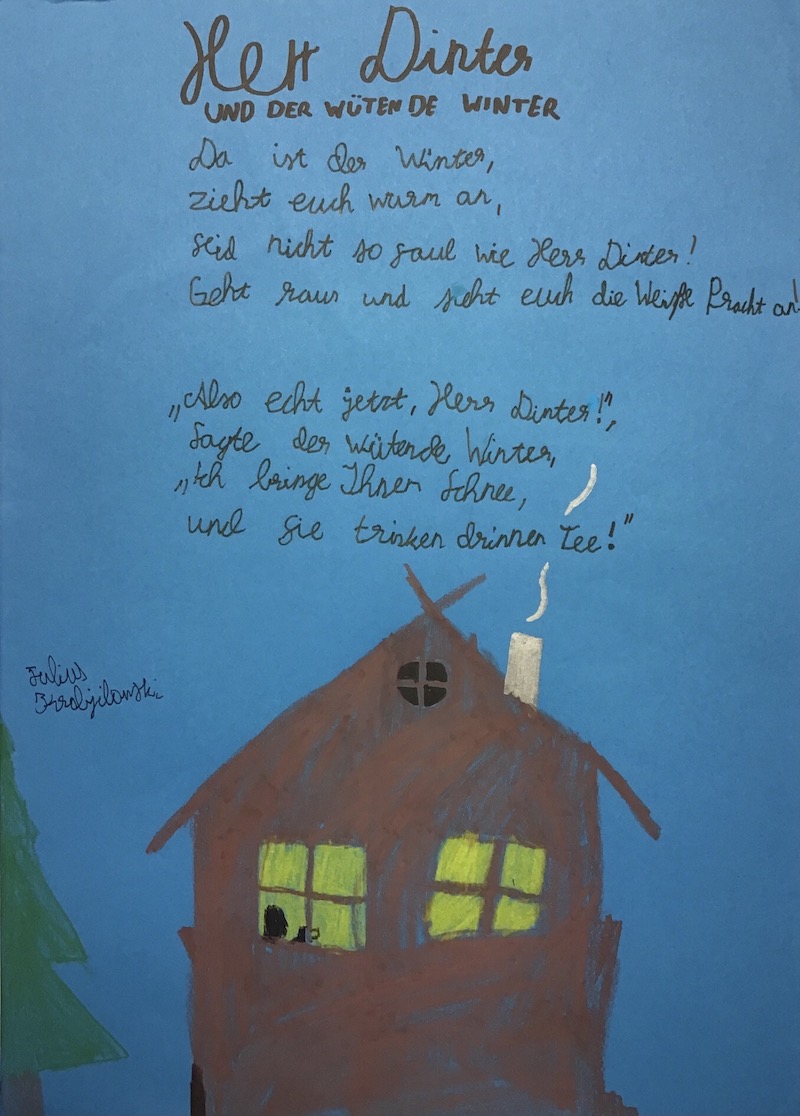 Herr Dinter
UND DER WÜTENDE WINTER
Da ist der Winter,
zieht euch warm an,
seid nicht so faul wie Herr Dinter!
Geht raus und seht euch die Weiße Pracht an!
„Also echt jetzt, Herr Dinter!",
sagte der wütende Winter,
„Ich bringe Ihnen Schnee,
und Sie trinken drinnen Tee!"
Julius